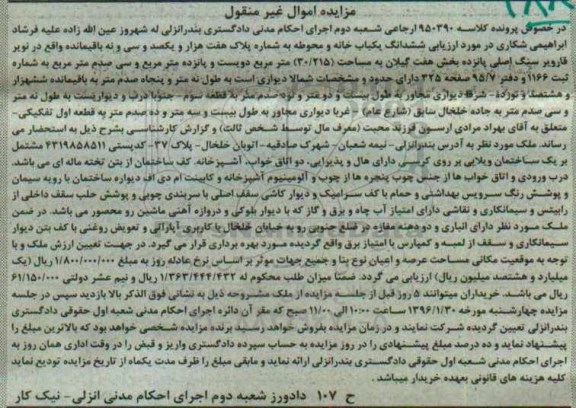 مزایده اموال غیر منقول
در خصوص پرونده کلاسه ۹۵۰۳۹۰ ارجاعی شعبه دوم اجرای احکام مدنی دادگستری بندرانزلی له شهروز عین الله زاده علیه فرشاد
ابراهیمی شکاری در مورد ارزیابی ششدانگ یکباب خانه و محوطه به شماره پلاک هفت هزار و یکصد و سی و نه باقیمانده واقع در نویر
قاروپر سنگ اصلی پانزده بخش هفت گیلان به مساحت (۳۰/۲۱۵) متر مربع دویست و پانزده متر مربع و سی صدم متر مربع به شماره
ثبت ۱۱۶۶ و دفتر ۹۵/۷ صفحه ۳۲۵ دارای حدود و مشخصات شمالا دیواری است به طول نه متر و پنجاه صدم متر به باقیمانده ششهزار
و هشتصد و نوزده - شرقا دیواری مجاور به طول بیست و دو متر و نود صدم متر به قطعه سوم - جنوبا درب و دیواریست به طول نه متر
و سی صدم متر به جاده خلخال سابق (شارع عام) - غربا دیواری مجاور به طول بیست و سه متر و ده صدم متر به قطعه اول تفکیکی -
متعلق به آقای بهراد مرادی ارسون فرزند محبت (معرف مال توسط شخص ثالث) و گزارش کارشناسی بشرح ذیل به استحضار می
رساند. ملک مورد نظر به آدرس بندرانزلی - نیمه شعبان - شهرک صادقیه - اتوبان خلخال - پلاک ۳۷ - کدپستی ۴۳۱۹۸۵۸۵۱۱ مشتمل
بر یک ساختمان ویلایی پر روی کرسی دارای هال و پذیرایی، دو اتاق خواب، آشپزخانه. کف ساختمان از بتن تخته ماله ای می باشد.
درب ورودی و اتاق خواب ها از جنس چوب پنجره ها از چوب و آلومینیوم آشپزخانه و کابینت ام دی اف دیواره ساختمان با رویه سیمان
و پوشش رنگ سرویس بهداشتی و حمام با کف سرامیک و دیوار کاشی سقف اصلی با سربندی چوبی و پوشش حلب سقف داخلی از
رابیتس و سیمانکاری و نقاشی دارای امتیاز آب چاه و برق و گاز که با دیوار بلوکی و دروازه آهنی ماشین رو محصور می باشد. در ضمن
ملک مورد نظر دارای انباری و دو دهنه مغازه در ضلع جنوبی رو به خیابان خلخال با کاربری آپاراتی و تعویض روغنی با کف بتن دیوار
سیمانکاری و سقف از لمبه و کمپارس با امتیاز برق واقع گردیده مورد بهره برداری قرار می گیرد. در جهت تعیین ارزش ملک و با
توجه به موقعیت مکانی مساحت عرصه و اعیان نوع بنا و جمیع جهات موثر بر اساس نرخ عادله روز به مبلغ ۱/۸۰۰/۰۰۰/۰۰۰ ریال (یک
میلیارد و هشتصد میلیون ریال) ارزیابی می گردد. ضمنا میزان طلب محکوم له ۱/۳۶۳/۴۴۴/۴۳۲ ریال و نیم عشر دولتی ۶۱/۱۵۰/۰۰۰
ریال می باشد. خریداران میتوانند ۵ روز قبل از جلسه مزایده از ملک مشروحه ذیل به نشانی فوق الذکر بالا بازدید سپس در جلسه
مزایده چهارشنبه مورخه ۱۳۹۶/۱/۳۰ ساعت ۱۰:۰۰ الی ۱۱/۰۰ صبح که مقر آن دائره اجرای احکام مدنی شعبه اول حقوقی دادگستری
بندرانزلی تعیین گردیده شرکت نمایند و در زمان مزایده بفروش خواهد رسید برنده مزایده شخصی خواهد بود که بالاترین مبلغ را
پیشنهاد نماید و ده درصد مبلغ پیشنهادی را در روز مزایده به حساب سپرده دادگستری واریز و قبض را در وقت اداری همان روز به
اجرای احکام مدنی شعبه اول حقوقی دادگستری بندرانزلی ارائه نماید و مابقی مبلغ را ظرف مدت یکماه از تاریخ مزایده تودیع نماید
کلیه هزینه های قانونی بعهده خریدار میباشد.
ح ۱۰۷ دادورز شعبه دوم اجرای احکام مدنی انزلی - نیک کار